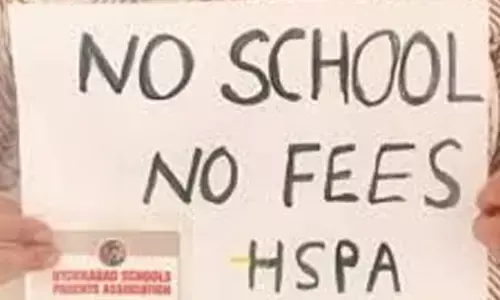 NO SCHOOL
NO FEES
-HSPA
HYDERABAD SCHOOLS
PARENTS ASSOCIATION